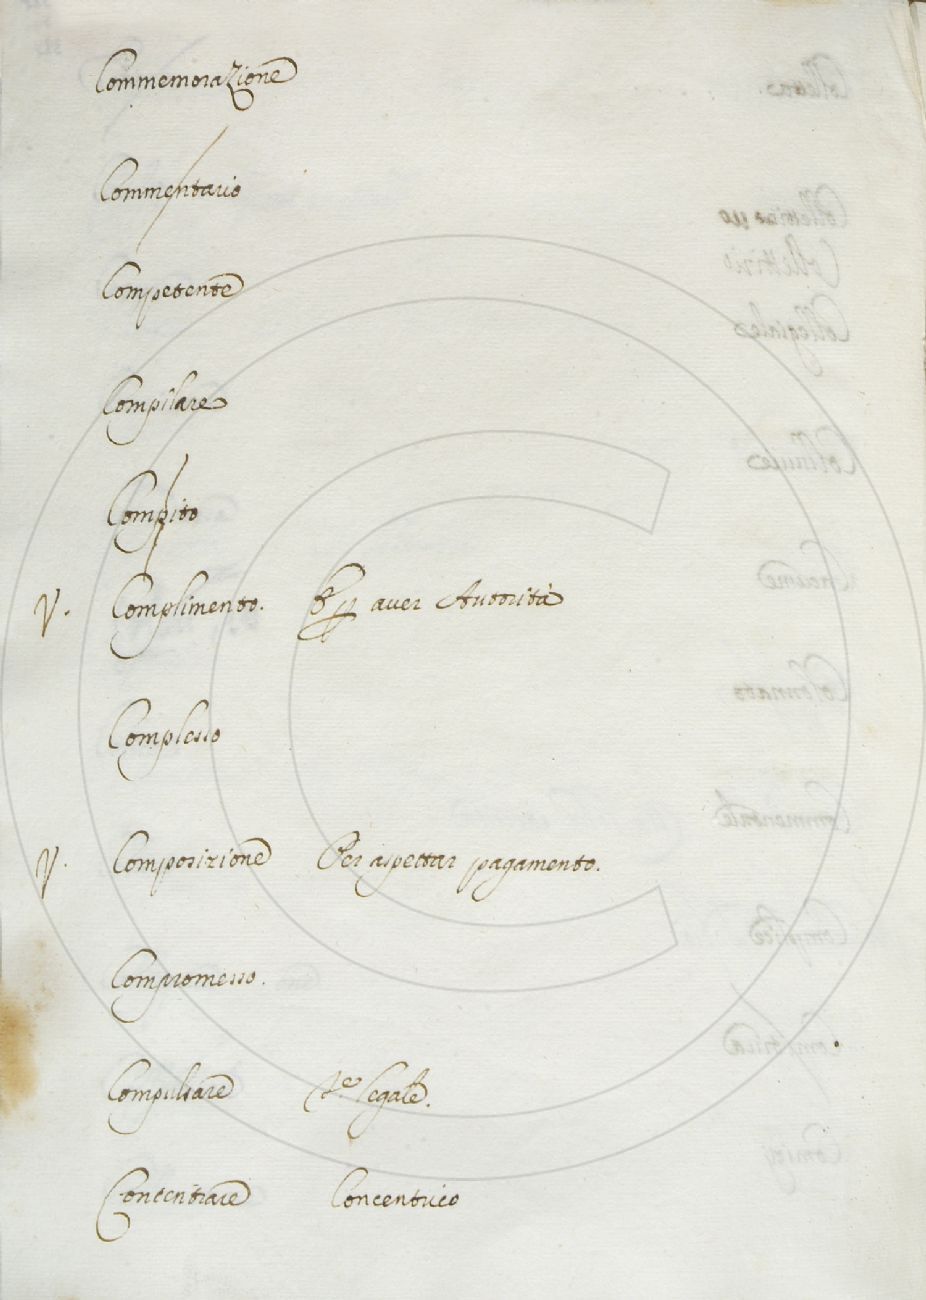 Commemorazione
Commentario
Competente
Compilare
Compito
V. Complimento. aver Autorità
Complesso
V. Composizione Per aspettar pagamento.
Compromesso.
Compulsare Te Legale.
Concentrare Concentrico